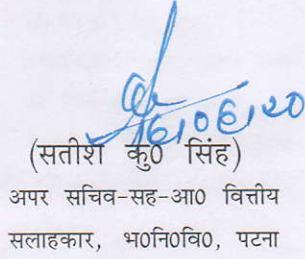 16/06/20
(सतीश कु0 सिंह)
अपर सचिव-सह-आ0 वित्तीय
सलाहकार, भ0नि0वि0, पटना